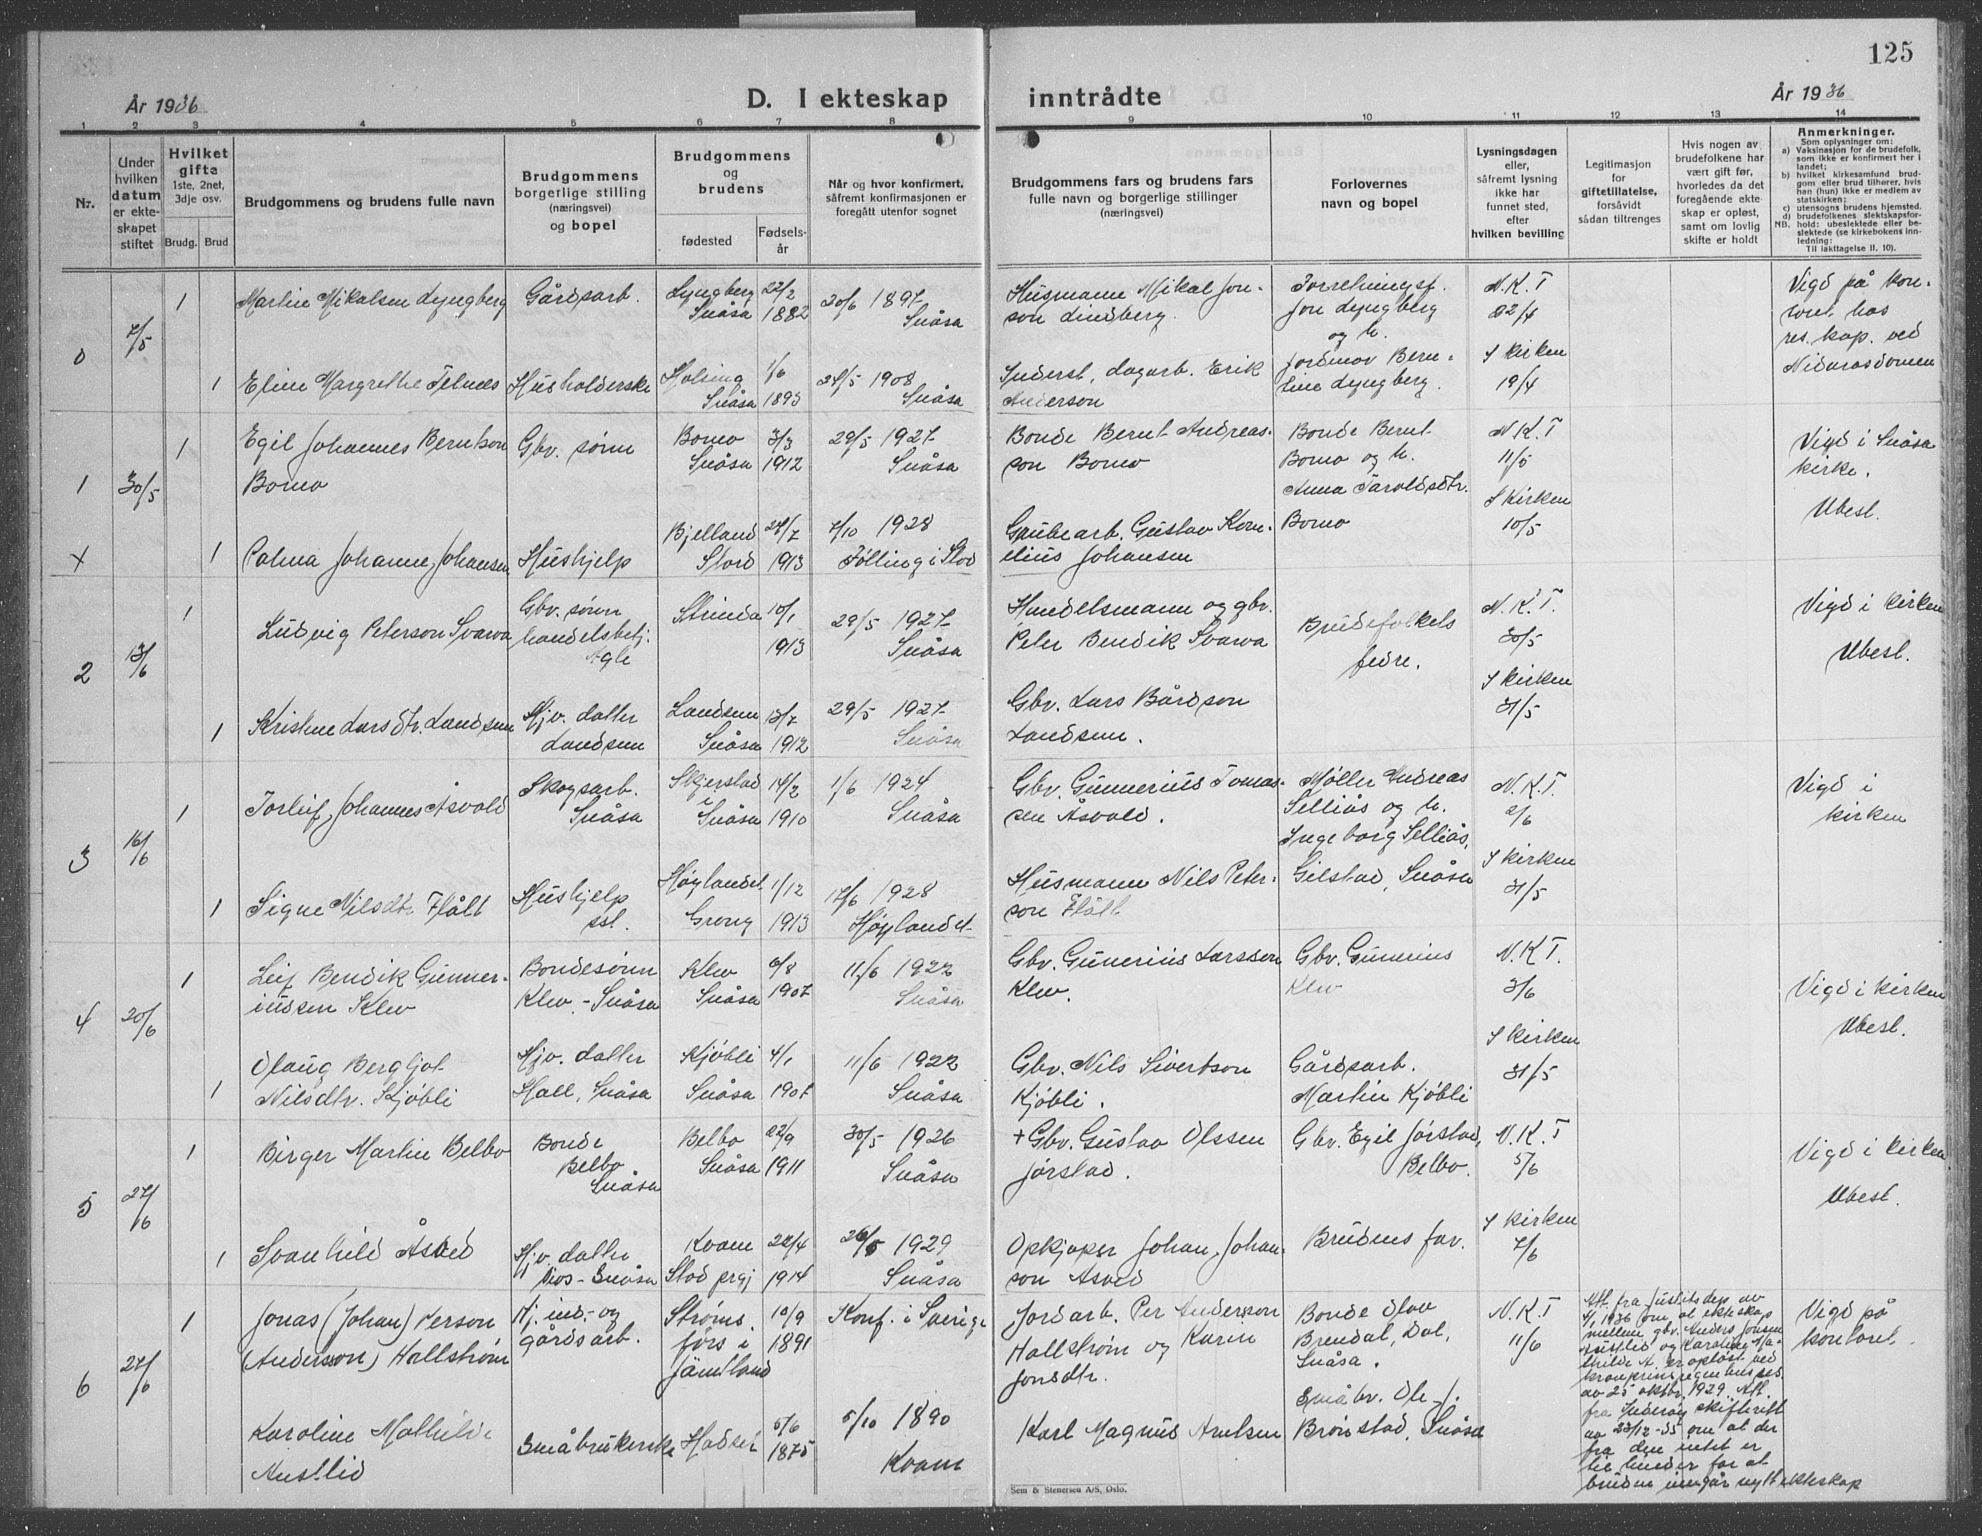 125
År 1936
D. I ekteskap inntrådte
År 1936
1 2 3 4 5 6 7 8 9 10 11 12 13 14
Nr.
Under hvilken datum er ekteskapet stiftet
Hvilket gifte 1ste, 2net, 3dje osv.
Brudg. Brud
Brudgommens og brudens fulle navn
Brudgommens borgerlige stilling (næringsvei) og bopel
Brudgommens og brudens
fødested
Fødsels-år
Når og hvor konfirmert, såfremt konfirmasjonen er foregått utenfor sognet
Brudgommens fars og brudens fars fulle navn og borgerlige stillinger (næringsvei)
Forlovernes navn og bopel
Lysningsdagen eller, såfremt lysning ikke har funnet sted, efter hvilken bevilling
Legitimasjon for giftetillatelse, forsåvidt sådan tiltrenges
Hvis nogen av brudefolkene har vært gift før, hvorledes da det foregående ekteskap er opløst, samt om lovlig skifte er holdt
Anmerkninger.
Som oplysninger om:
a) Vaksinasjon for de brudefolk, som ikke er konfirmert her i landet;
b) hvilket kirkesamfund brudgom eller brud tilhører, hvis han (hun) ikke er medlem av statskirken;
c) utensogns brudens hjemsted.
d) brudefolkenes slektskapsforhold: ubeslektede eller beslektede (se kirkebokens innledning:
NB.
Til iakttagelse II. 10).
0 7/5 1 Martin Mikalsen Lyngberg Gårdsarb. Lyngberg Snåsa 22/2 1882 20/6 1897 Snåsa
Husmann Mikal Jonson Lindberg Forretningsf. Jon Lyngberg og h. N.K.T 22/4
Vigd på kont. hos res. kap. ved Nidarosdomen
1 Eline Margrethe Felnes Husholderske Snåsa 1/6 1893 24/5 1908 Snåsa
Inderst, dagarb. Erik Anderson Lyngberg. I kirken 19/4
1 30/5 1 Egil Johannes Berntson Bomo Gbr. sønn Bomo Snåsa 3/3 1912 29/5 1927 Snåsa
Bonde Bernt Andreasson Bomo Bonde Bernt Bomo og h. Anna Taroldsdtr. Bomo N.K.T 11/5
Vigd i Snåsa kirke. Ubesl.
x 1 Palma Johanne Johansen Hushjelp Bjelland Stord 24/7 1913 7/10 1928 Følling i Stod
Gustav Kornelius Johansen I Kirken 10/5
2 13/6 1 Ludvig Peterson Svarva Gbr. sønn handelsbetj. Agle Strinda 10/1 1913 29/5 1927 Snåsa
Handelsmann og gbr. Peter Bendik Svarva Brudefolkets fedre. N.K.T. 30/5
Vigd i kirken Ubesl.
1 Kristine Larsdtr. Landsem Hjv. datter Landsem Landsem Snåsa 13/7 1912 29/5 1927 Snåsa
Gbr. Lars Bårdson Landsem. I kirken 31/5
3 16/6 1 Torleif Johannes Åsvold Skogsarb. Snåsa Skjerstad i Snåsa 14/2 1910 1/6 1924 Snåsa
Gbr. Gunnerius Tomassen Åsvold. Møller Andreas Selliås og h. Ingeborg Selliås, Gilstad, Snåsa N.K.T. 2/6
Vigd i kirken
1 Signe Nilsdtr Flått Hushjelp sst. Høylandet Grong 1/12 1913 17/6 1928 Høylandet
Husmann Nils Peterson Flått I kirken 31/5
4 20/6 1 Leif Bendik Gunneriussen Klev Bondesønn Klev - Snåsa Klev Snåsa 6/8 1907 11/6 1922 Snåsa
Gbr. Gunerius Larssen Klev. Gbr. Gunerius Klev N.K.T 3/6
Vigd i kirken Ubesl.
1 Olaug Bergljot Nilsdtr. Kjøbli Hjv. datter Hall, Snåsa Kjøbli Snåsa 4/1 1907 11/6 1922 Snåsa
Gbr. Nils Sivertson Kjøbli. Gårdsarb. Martin Kjøbli I kirken 31/5
5 27/6 1 Birger Martin Belbo Bonde Belbo Snåsa Belbo Snåsa 22/9 1911 30/5 1926 Snåsa
+ Gbr. Gustav Olssen Jørstad. Gbr. Egil Jørstad, Belbo. N.K.T 5/6
Vigd i kirken Ubesl.
1 Svanhild Åsved Hjv. datter Vios - Snåsa Kvam Stod prgj 22/4 1914 26/5 1929 Snåsa
Opkjøper Johan Johanson Åsved Brudens far. I kirken 7/6
6 27/6 1 Jonas (Johan) Person (Andersson) Hallstrøm Hj. ind.- og gårdsarb. Strøms førs i Jämtland 10/9 1891 Konf. i Sverige
Jordarb. Per Anderson Hallstrøm og Karin Jonsdtr. Bonde Olav Brendal, Dal, Snåsa. N.K.T 11/6
Att. fra Justitsdep av 4/1 1936 om at ekteskap mellem gbr. Anders Jonsen Austlid og Karoline Mathilde A. er opløst ved kronprinsregentens res. av 25 oktbr. 1929. Att. fra Inderøy skifterett av 23/12-35 om at der fra den intet er til hinder for at bruden inngår nytt ekteskap
Vigd på kontoret.
Karoline Mathilde Austlid Småbrukerske 5/6 1875 5/10 1890 Kvam
Karl Magnus Arntsen Småbr. Ole J. Brønstad, Snåsa
Sem & Stenersen A/S, Oslo.